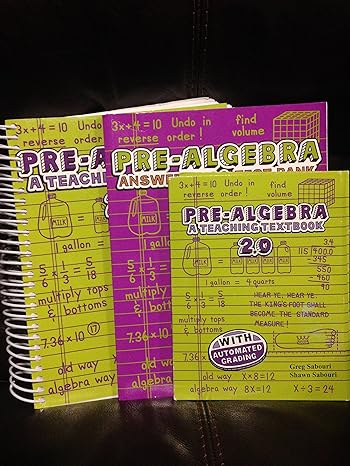 3x+4=10 Undo in
reverse order!
PRE-ALGEBRA
A TEACH
MILK
1 gallon =
5/6 ÷ 1/3 = 5/18
multiply tops
& bottoms
7.36 x 10 (17)
old way
algebra way
3x+4=10 Undo in
reverse order!
find
volume
PRE-ALGEBRA
ANSWE
BANK
MILK
1 gal
multip
& bo
7.36 x
old
algebr
3x+4=10 Undo in
reverse order!
find
volume
PRE-ALGEBRA
A TEACHING TEXTBOOK
2.0
MILK
MILK MILK MILK MILK
3.4
115 400.0
-345
550
460
40
1 gallon = 4 quarts
HEAR YE, HEAR YE:
THE KING'S FOOT SHALL
BECOME THE STANDARD
MEASURE!
multiply tops
& bottoms
7.36 x
WITH
AUTOMATED
GRADING
Greg Sabouri
Shawn Sabouri
old way X×8=12
algebra way 8X=12
X÷3=24